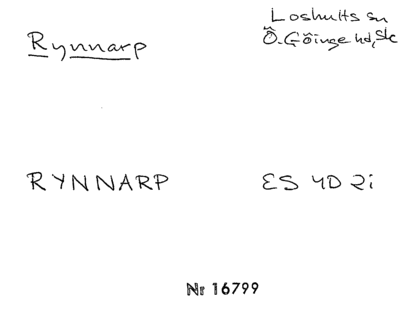 Rynnarp
Loshults sn
Ö. Göinge hd, Sk
RYNNARP
ES 4D 2i
Nr 16799